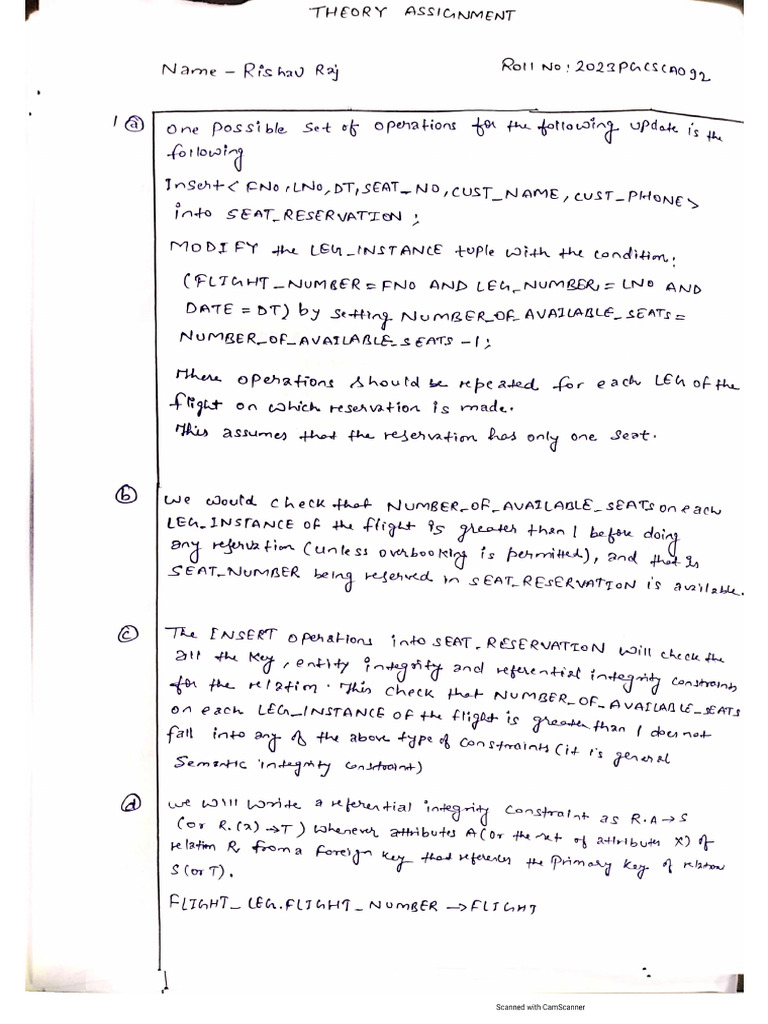 THEORY ASSIGNMENT
Name - Rishav Raj
Roll No: 2023PGCSCA092
1 (a) One possible set of operations for the following update is the
following
Insert < FNO, LNO, DT, SEAT_NO, CUST_NAME, CUST_PHONE>
into SEAT_RESERVATION;
MODIFY the LEG_INSTANCE tuple with the condition:
(FLIGHT_NUMBER = FNO AND LEG_NUMBER = LNO AND
DATE = DT) by setting NUMBER_OF_AVAILABLE_SEATS =
NUMBER_OF_AVAILABLE_SEATS - 1;
These operations should be repeated for each LEG of the
flight on which reservation is made.
This assumes that the reservation has only one seat.
(b) We would check that NUMBER_OF_AVAILABLE_SEATS on each
LEG_INSTANCE of the flight is greater than 1 before doing
any reservation (unless overbooking is permitted), and that is
SEAT_NUMBER being reserved in SEAT_RESERVATION is available.
(c) The INSERT operations into SEAT_RESERVATION will check the
all the key, entity integrity and referential integrity constraints
for the relation. This check that NUMBER_OF_AVAILABLE_SEATS
on each LEG_INSTANCE of the flight is greater than 1 does not
fall into any of the above type of constraints (it is general
Semantic integrity constraint)
(d) We will write a referential integrity constraint as R.A → S
(or R.(X) → T) whenever attributes A (or the set of attributes X) of
relation R from a foreign key that references the primary key of relation
S (or T).
FLIGHT_LEG.FLIGHT_NUMBER → FLIGHT
Scanned with CamScanner